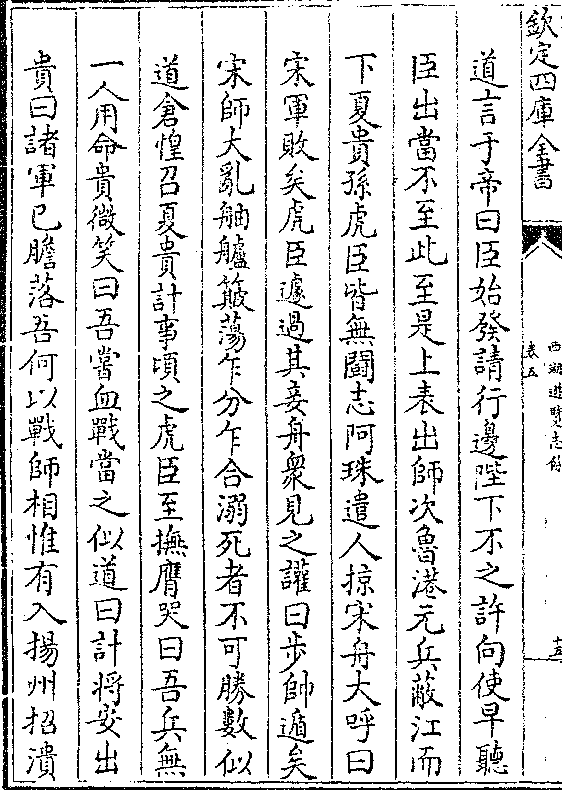 欽定四庫全書
西湖遊覽志餘
卷五
十五
道言于帝曰臣始發請行邊陛下不之許向使早聽
臣出當不至此至是上表出師次魯港元兵蔽江而
下夏貴孫虎臣皆無鬬志阿珠遣人掠宋舟大呼曰
宋軍敗矣虎臣遽過其妾舟衆見之讙曰步帥遁矣
宋師大亂舳艫簸蕩乍分乍合溺死者不可勝數似
道倉惶召夏貴計事頃之虎臣至撫膺哭曰吾兵無
一人用命貴微笑曰吾嘗血戰當之似道曰計將安出
貴曰諸軍已膽落吾何以戰師相惟有入揚州招潰